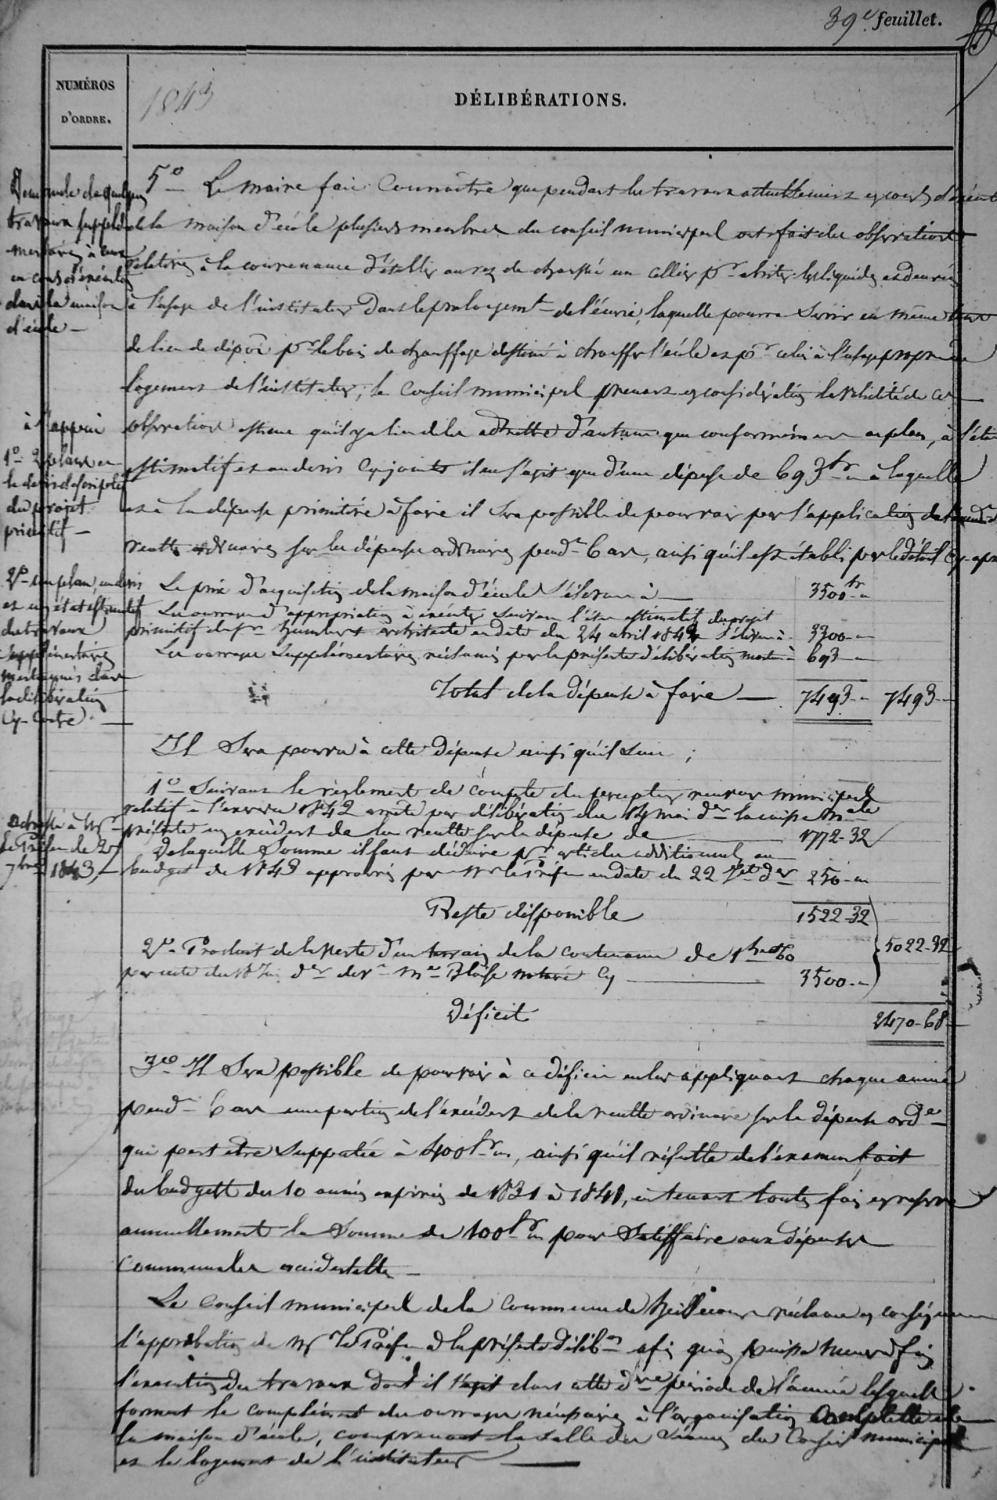 39e feuillet.
NUMÉROS
D'ORDRE.
1843
DÉLIBÉRATIONS.
Demande de quelques
travaux supplé
-mentaires à ceux
en cours d'exécution
dans la maison
d'école —
5o — Le maire fait connaître que pendant les travaux actuellement en cours d'exécution
de la maison d'école plusieurs membres du conseil municipal ont fait des observations
relatives à la convenance d'établir au rez de chaussée un cellier pr abriter les liquides et denrées
à l'usage de l'instituteur dans le prolongemt de l'écurie, laquelle pourra servir en même tems
de lieu de dépôt pr le bois de chauffage destiné à chauffer l'école et pr celui à l'usage propre au
logement de l'instituteur; le Conseil municipal prenant en considération la validité de ces
observations estime qu'il y a lieu de les admettre d'autant que conformément au plan, à l'état
estimatif et au devis cy joints il ne s'agit que d'une dépense de 693 fr à laquelle
et à la dépense primitive à faire il sera possible de pourvoir par l'application de l'excédt de
recettes ordinaires sur les dépenses ordinaires pendt 6 ans, ainsi qu'il est établi par le détail cy-après
à l'appui
1o — le plan et
le devis descriptif
du projet
primitif —
2o un plan, un devis
et un état estimatif
des travaux
supplémentaires
mentionnés dans
la délibération
Cy-Contre. —
Le prix d'acquisition de la maison d'école s'élevant à — 3500 fr "
Les ouvrages d'appropriation à exécuter suivant l'état estimatif du projet
primitif du Sr Humbert architecte en date du 24 avril 1842 s'élevant à - 3300 — "
Les ouvrages supplémentaires réclamés par la présente délibération montent à 693 — "
Total de la dépense à faire — 7493 - " 7493 -
Il sera pourvu à cette dépense ainsi qu'il suit;
1o — Suivant le règlement de compte du percepteur receveur municipal
relatif à l'exercice 1842 arrêté par délibération du 14 mai der la caisse mcale
présente un excédent de la recette sur la dépense de — 1772-32
De laquelle somme il faut déduire pr articles additionnels au
budget de 1843 approuvés par Mr le Préfet en date du 22 der 250 - "
Adressé à Mr
le Préfet le 20
7bre 1843, —
Reste disponible 1522-32
2o. Produit de la vente d'un terrain de la contenance de 1 h 60
par acte du 18 der devt Me Blaise notaire Cy — 3500 - "
5022-32
Déficit 2470-68
3o Il sera possible de pourvoir à ce déficit en lui appliquant chaque année
pendt 6 ans une partie de l'excédent de la recette ordinaire sur la dépense orde
qui peut être supputée à 400 fr ", ainsi qu'il résulte de l'examen fait
des budgets des 10 années expirées de 1831 à 1841, en tenant toutes fois en réserve
annuellement la somme de 100 fr " pour satisfaire aux dépenses
communales accidentelles —
Le Conseil municipal de la Commune de réclame en conséquence
l'approbation de Mr le Préfet à la présente délibon afin qu'on puisse
l'exécution des travaux dont il s'agit dans cette dre période de l'année lesquels
forment le complément des ouvrages nécessaires à l'organisation complette de
la maison d'école, comprenant la salle des séances du Conseil municipal
et le logement de l'instituteur —